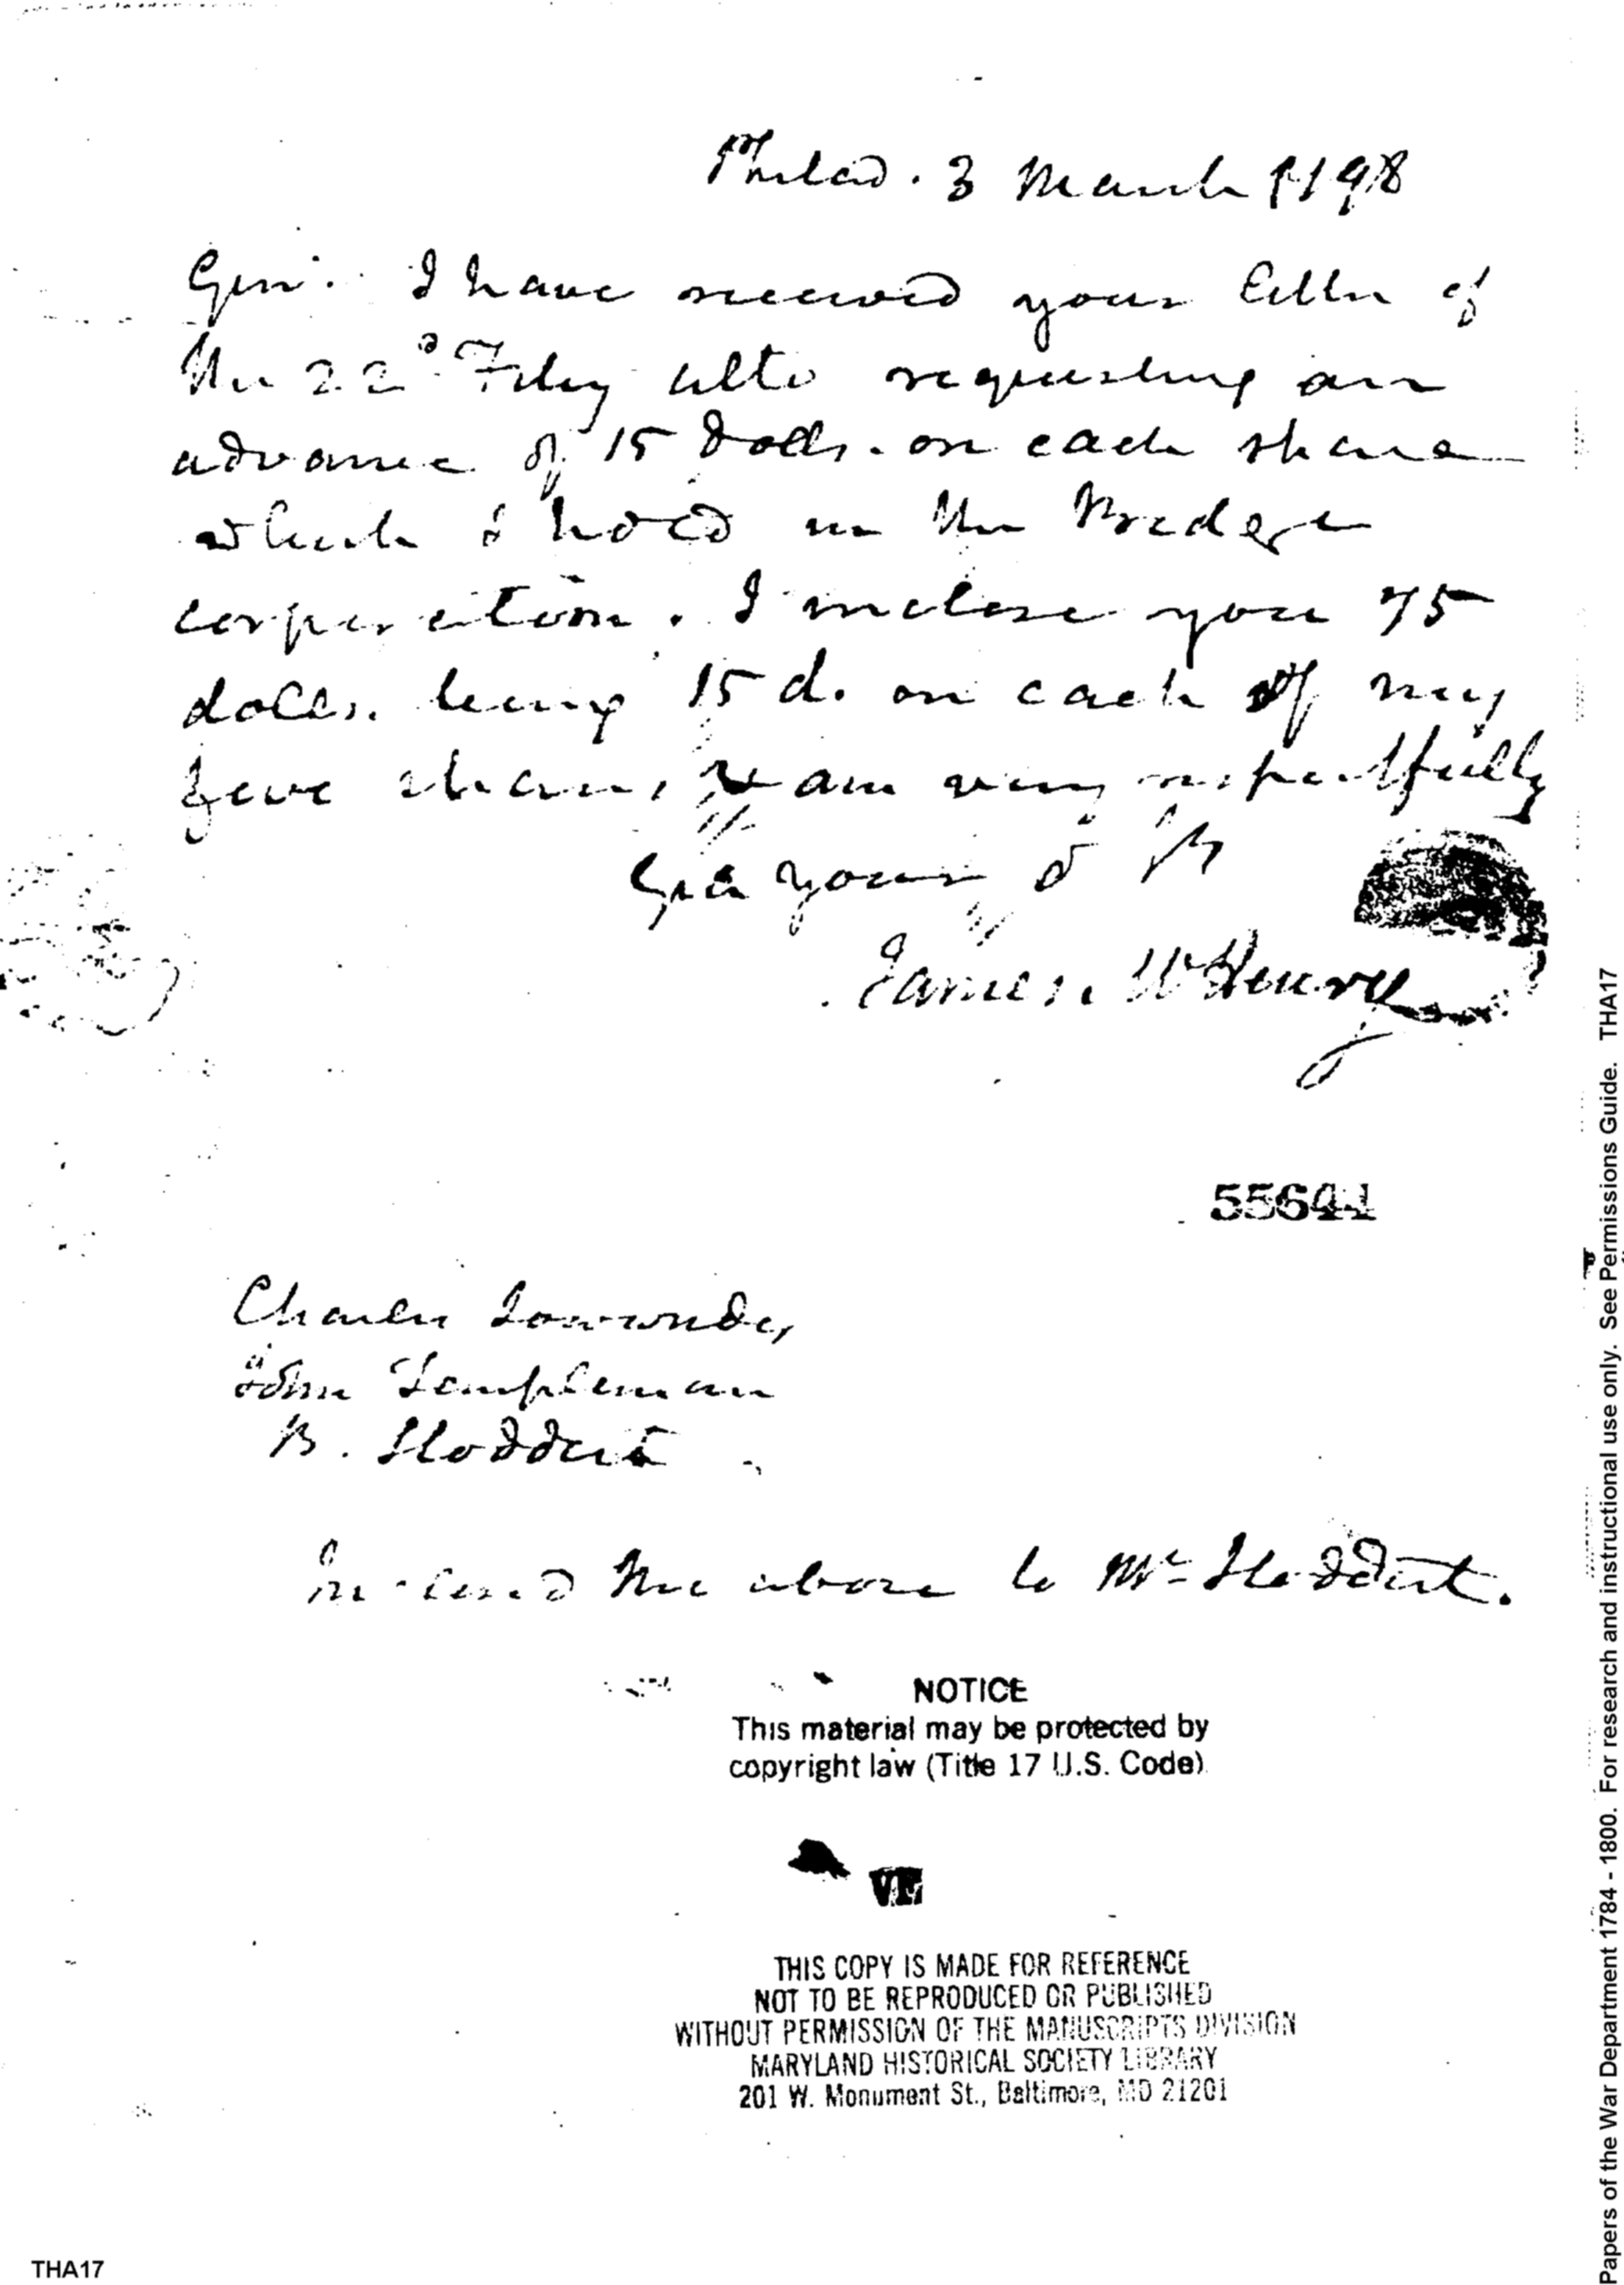 Philad. 3 March 1798
Gen. I have received your letter of
the 22d Feby ulto requesting an
advance of 15 dolls. on each share
which I hold in the Bridge
corporation. I inclose you 75
dolls. being 15 d. on each of my
five shares & am very respectfully
Gen your o
James McHenry
55644
Charles Lowndes
John Templeman
B. Stoddert
Inclosed the above to Mr Stoddert.
NOTICE
This material may be protected by
copyright law (Title 17 U.S. Code)
THIS COPY IS MADE FOR REFERENCE
NOT TO BE REPRODUCED OR PUBLISHED
WITHOUT PERMISSION OF THE MANUSCRIPTS DIVISION
MARYLAND HISTORICAL SOCIETY LIBRARY
201 W. Monument St., Baltimore, MD 21201
THA17
Papers of the War Department 1784 - 1800. For research and instructional use only. See Permissions Guide. THA17